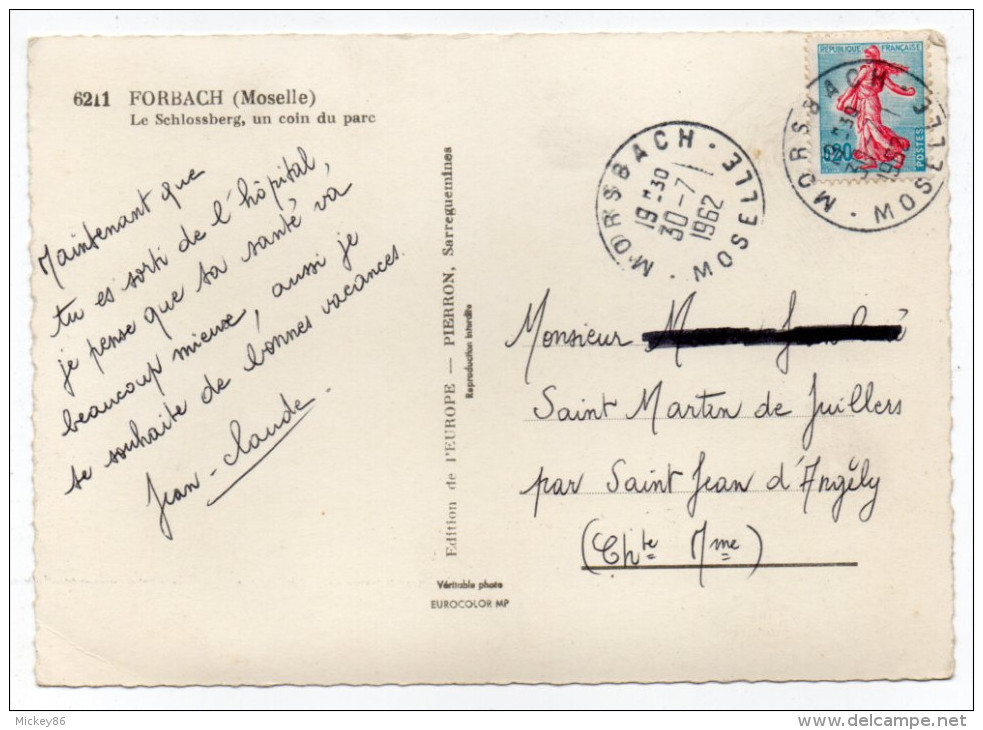 6211 FORBACH (Moselle)
Le Schlossberg, un coin du parc
Maintenant que
tu es sorti de l'hôpital,
je pense que ta santé va
beaucoup mieux, aussi je
te souhaite de bonnes vacances.
Jean-Claude.
Edition de l'EUROPE — PIERRON, Sarreguemines
Reproduction Interdite
Véritable photo
EUROCOLOR MP
REPUBLIQUE FRANÇAISE
0,20
POSTES
MORSBACH · MOSELLE ·
19 H 30
30-7
1962
MORSBACH · MOSELLE ·
1962
Monsieur
Saint Martin de Juillers
par Saint Jean d'Angély
(Chte Mme)
Mickey86
www.delcampe.net